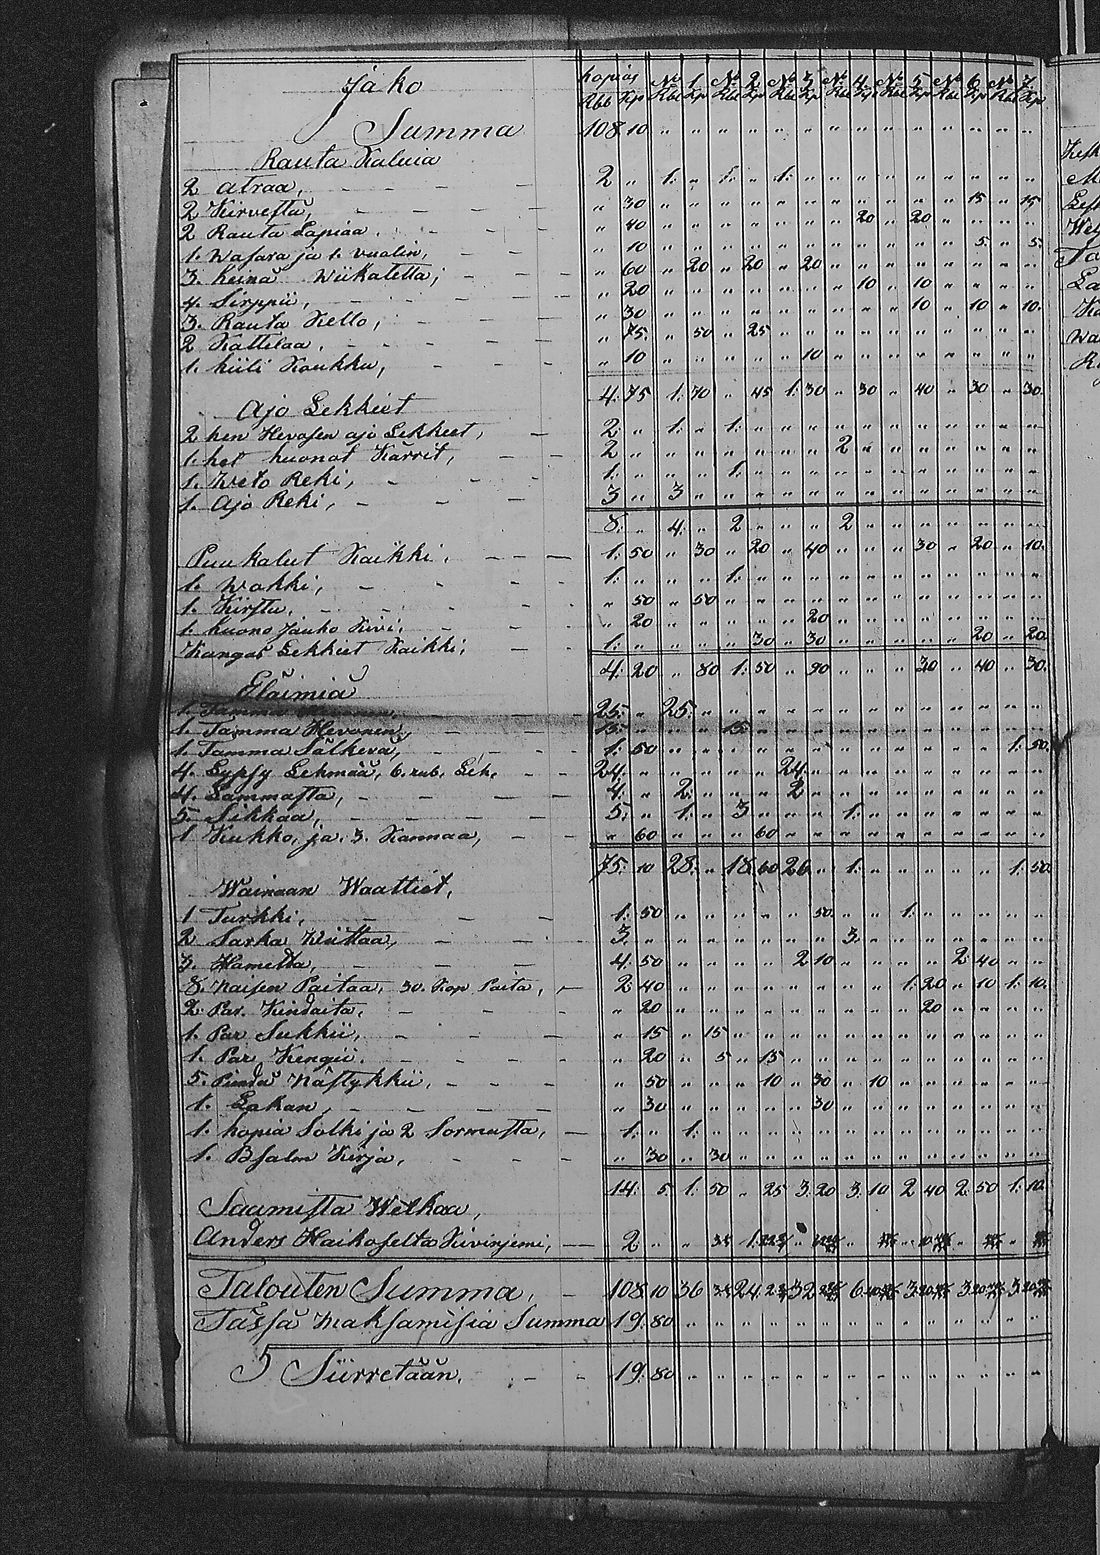 Jako
hopias No 1. No 2 No 3. No 4 No 5 No 6 No 7
Rbl Kp Rbl Kp Rbl Kp Rbl Kp Rbl Kp Rbl Kp Rbl Kp Rbl Kp
Summa 108 10 " " " " " " " " " " " " " "
Rauta Kaluia
2 atraa, 2 " 1. " 1. " 1. " " " " " " " " "
2 Kirvesta, " 30 " " " " " " " " " " " 15 " 15
2 Rauta Lapiaa " 40 " " " " " " " 20 " 20 " " " "
1. Wasara ja 1. vualin, " 10 " " " " " " " " " " " 5 " 5
3. heinä Wiikatetta, " 60 " 20 " 20 " 20 " " " " " " " "
4. Sirppiä, " 20 " " " " " " " 10 " 10 " " " "
3. Rauta Kello, " 30 " " " " " " " " " 10 " 10 " 10.
2 Kattilaa, " 75. " 50 " 25 " " " " " " " " " "
1. hiili Koukku, " 10 " " " " " 10 " " " " " " " "
4. 75 1. 70 " 45 1. 30 " 30 " 40 " 30 " 30.
Ajo Lekkiet
2 hen Hevosen ajo Lekkeet, 2. " 1. " 1. " " " " " " " " " " "
1. het huonot Kärrit, 2 " " " " " " " 2 " " " " " " "
1. Weto Reki, 1. " " " 1. " " " " " " " " " " "
1. Ajo Reki, 3 " 3 " " " " " " " " " " " " "
8. " 4. " 2 " " " 2 " " " " " " "
Puukalut Kaikki. 1. 50 " 30 " 20 " 40 " " " 30 " 20 " 10.
1. Wakki, 1. " " " 1. " " " " " " " " " " "
1. Kirstu, " 50 " 50 " " " " " " " " " " " "
1. huono Jauho Kivi. " 20 " " " " " 20 " " " " " " " "
Kangas Lekkiet Kaikki, 1. " " " " 30 " 30 " " " " " 20 " 20
4. 20 " 80 1. 50 " 90 " " " 30 " 40 " 30.
Eläimiä
1 Tamma 25. " 25. " " " " " " " " " " " " "
1. Tamma Hevonen, 15. " " " 15 " " " " " " " " " " "
1. Tamma Sälkevä, 1. 50 " " " " " " " " " " " " 1. 50.
4. Lypsy Lehmää, 6. rub. Leh, 24. " " " " " 24. " " " " " " " " "
4. Lammasta, 4. " 2. " " " 2 " " " " " " " " "
5 Sikkaa, 5. " 1. " 3 " " " 1. " " " " " " "
1 Kukko, ja. 3. Kannaa, " 60 " " " 60 " " " " " " " " " "
75. 10 28. " 18 60 26 " 1. " " " " " 1. 50.
Wainaan Waattiet,
1 Turkki, 1. 50 " " " " " 50 " " 1. " " " " "
2 Sarka Wiittaa, 3. " " " " " " " 3. " " " " " " "
3. Hametta, 4. 50 " " " " 2 10 " " " " 2 40 " "
8. Naisen Paitaa, 30. Kop Paita, 2 40 " " " " " " " " 1. 20 " 10 1. 10.
2 Par. Kindaita, " 20 " " " " " " " " " 20 " " " "
1. Par Sukkii, " 15 " 15 " " " " " " " " " " " "
1. Par Kengii. " 20 " 5 " 15 " " " " " " " " " "
5. Näftykkii, " 50 " " " 10 " 30 " 10 " " " " " "
1. Lakan, " 30 " " " " " 30 " " " " " " " "
1. hopia Solki ja 2 Sormusta, 1. " 1. " " " " " " " " " " " " "
1. Psalm Kirja, " 30 " 30 " " " " " " " " " " " "
14. 5 1. 50 " 25 3. 20 3. 10 2 40 2. 50 1. 10.
Saamista Welkaa,
Anders Haikoselta Kivinjemi, 2 "
Talouten Summa, 108 10 36 24 32 6 3 3 3
Tässä maksamisia Summa 19. 80 " " " " " " " " " " " " " "
5 Siirretään. 19. 80 " " " " " " " " " " " " " "